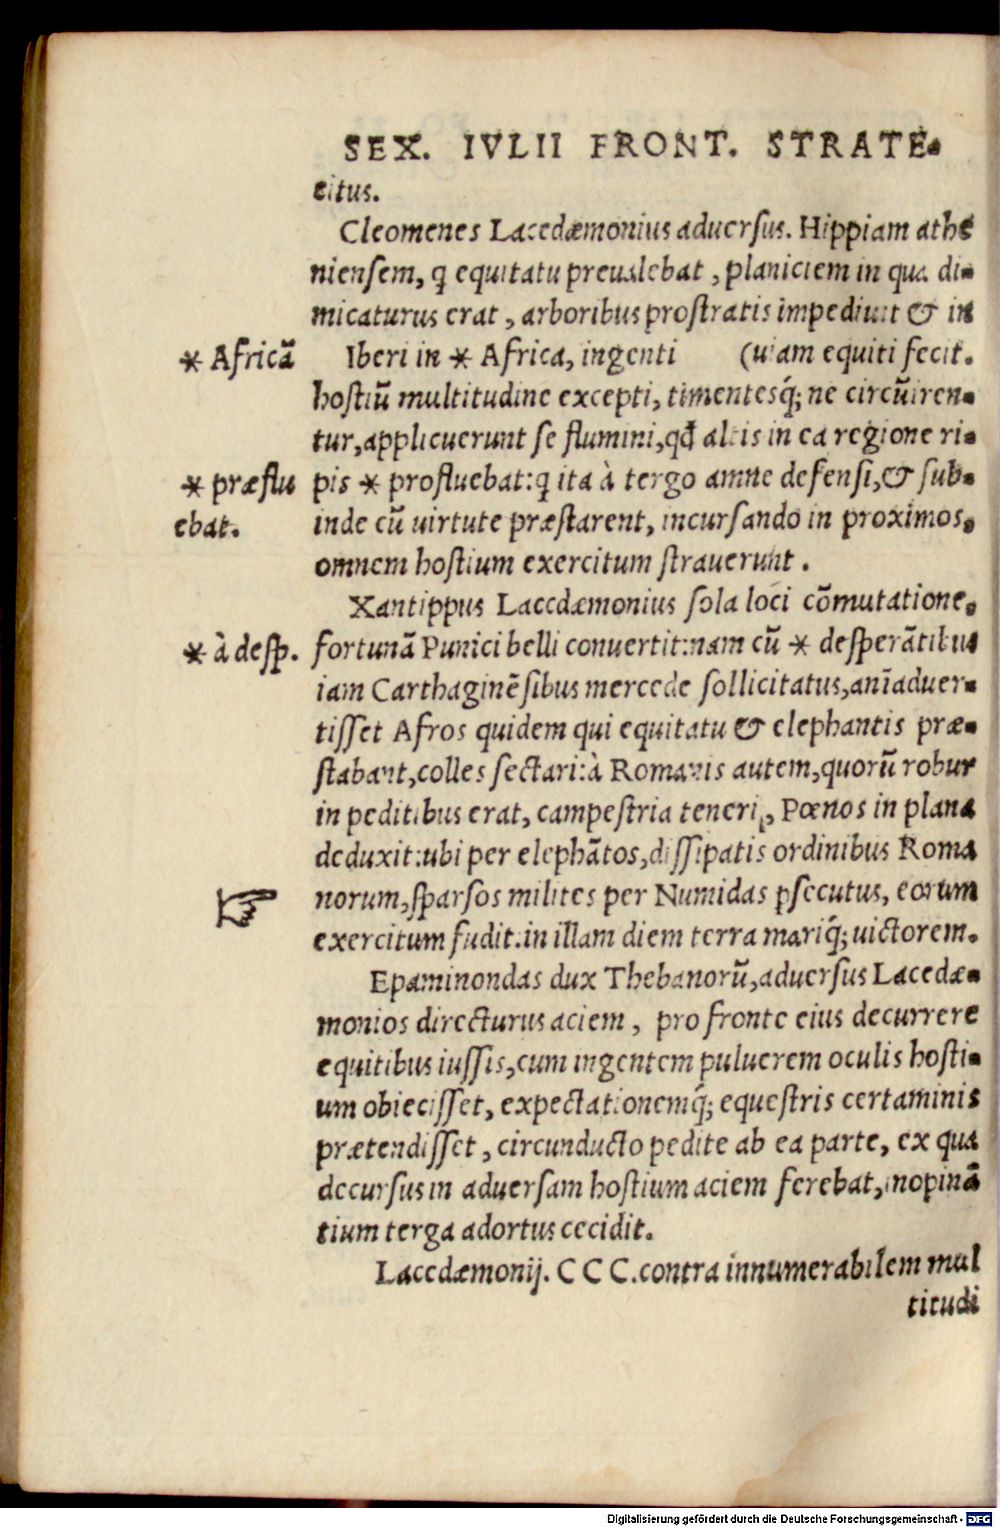 SEX. IVLII FRONT. STRATE-
citus.
Cleomenes Lacedæmonius aduersus. Hippiam athē
niensem, q̄ equitatu preualebat, planiciem in qua di-
micaturus erat, arboribus prostratis impediuit & in
* Africā
Iberi in * Africa, ingenti (uiam equiti fecit.
hostiū multitudine excepti, timentesq́; ne circūiren-
tur, applicuerunt se flumini, qđ altis in ea regione ri-
* præflu
pis * profluebat: q̄ ita à tergo amne defensi, & sub-
ebat.
inde cū uirtute præstarent, incursando in proximos,
omnem hostium exercitum strauerunt.
Xantippus Lacedæmonius sola loci cōmutatione,
* à desp.
fortunā Punici belli conuertit: nam cū * desperātibus
iam Carthaginēsibus mercede sollicitatus, anīaduer-
tisset Afros quidem qui equitatu & elephantis præ-
stabant, colles sectari: à Romanis autem, quorū robur
in peditibus erat, campestria teneri, Pœnos in plana
deduxit: ubi per elephātos, dissipatis ordinibus Roma
norum, sparsos milites per Numidas ꝑsecutus, eorum
exercitum fudit: in illam diem terra mariq́; uictorem.
Epaminondas dux Thebanorū, aduersus Lacedæ-
monios directurus aciem, pro fronte eius decurrere
equitibus iussis, cum ingentem puluerem oculis hosti-
um obiecisset, expectationemq́; equestris certaminis
prætendisset, circunducto pedite ab ea parte, ex qua
decursus in aduersam hostium aciem ferebat, inopinā
tium terga adortus cecidit.
Lacedæmonij. CCC. contra innumerabilem mul
titudi
Digitalisierung gefördert durch die Deutsche Forschungsgemeinschaft - DFG